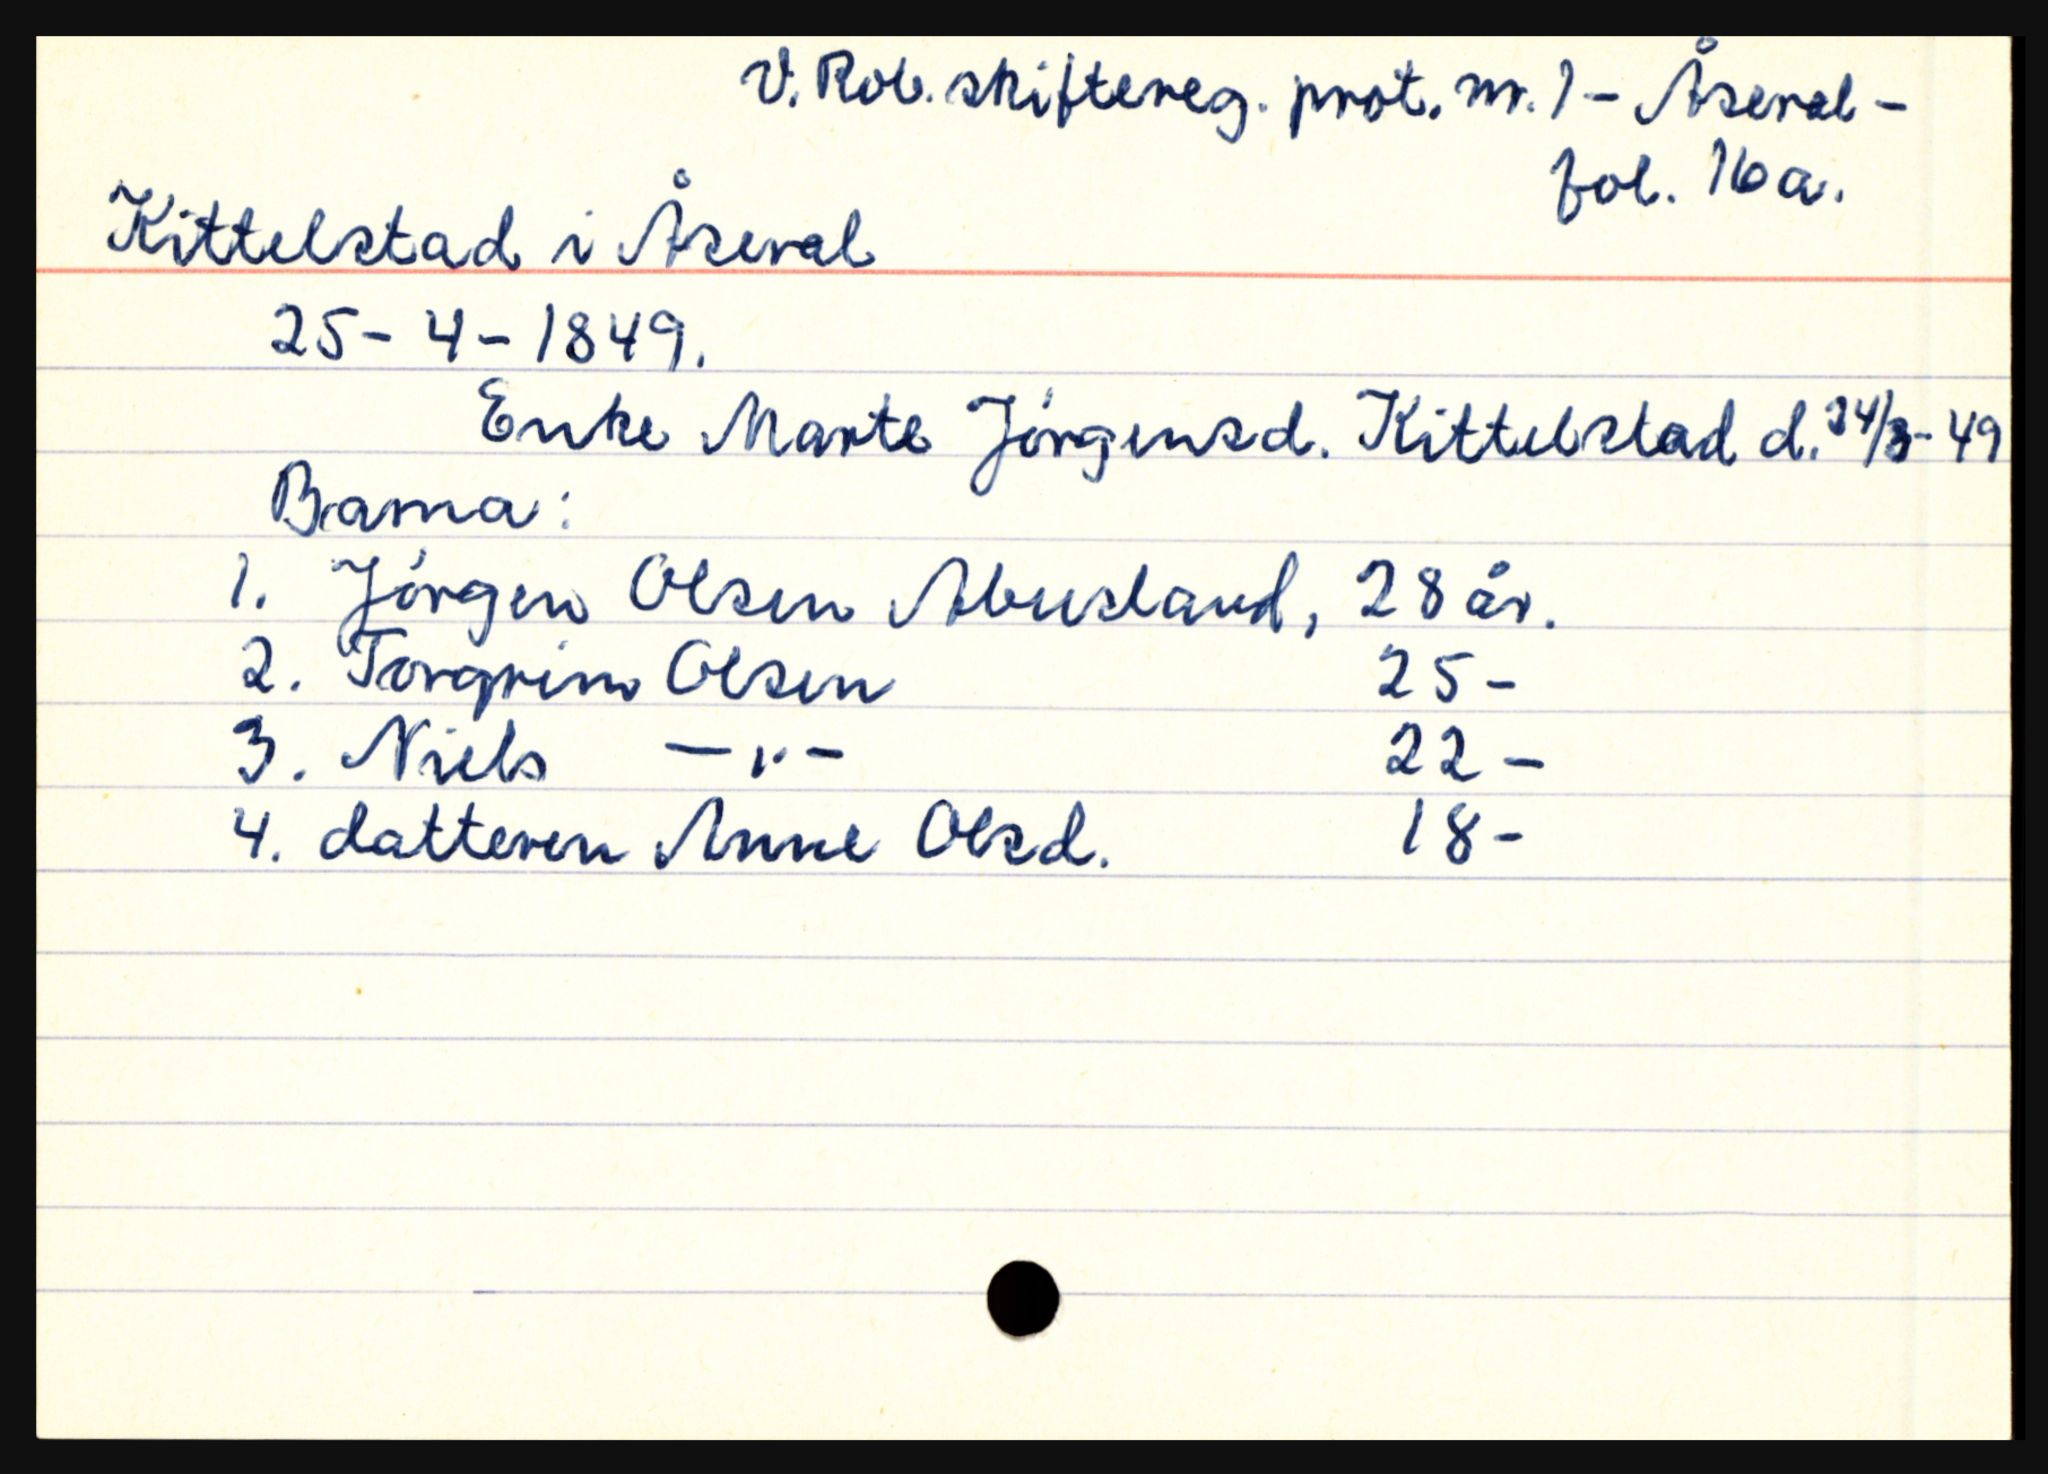 V. Rob. skiftereg. prot. nr. 1 - Åseral -
fol. 16a.
Kittelstad i Åseral
25-4-1849.
Enke Marte Jørgensd. Kittelstad d. 24/3-49
Barna:
1. Jørgen Olsen Abusland, 28 år.
2. Torgrim Olsen 25-
3. Niels -"- 22-
4. datteren Anne Olsd. 18-